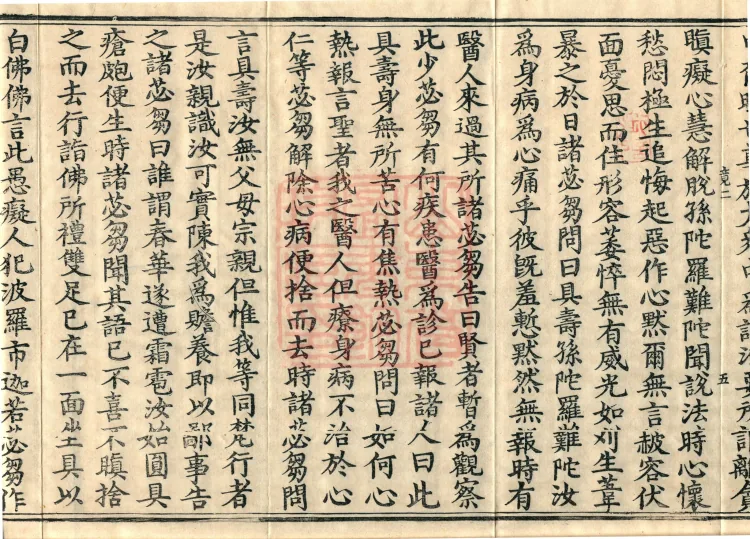 瞋癡心慧解脫孫陀羅難陀聞說法時心懷
愁悶極生追悔起惡作心默爾無言赧容伏
面憂思而住形容萎悴無有威光如刈生葦
暴之於日諸苾芻問曰具壽孫陀羅難陀汝
爲身病爲心痛乎彼旣羞慙默然無報時有
醫人來過其所諸苾芻告曰賢者暫爲觀察
此少苾芻有何疾患醫爲診已報諸人曰此
具壽身無所苦心有焦熱苾芻問曰如何心
熱報言聖者我之醫人但療身病不治於心
仁等苾芻解除心病便捨而去時諸苾芻問
言具壽汝無父母宗親但惟我等同梵行者
是汝親識汝可實陳我爲贍養即以鄙事告
之諸苾芻曰誰謂春華遂遭霜雹汝始圓具
瘡皰便生時諸苾芻聞其語已不喜不瞋捨
之而去行詣佛所禮雙足已在一面坐具以
白佛佛言此愚癡人犯波羅市迦若苾芻作